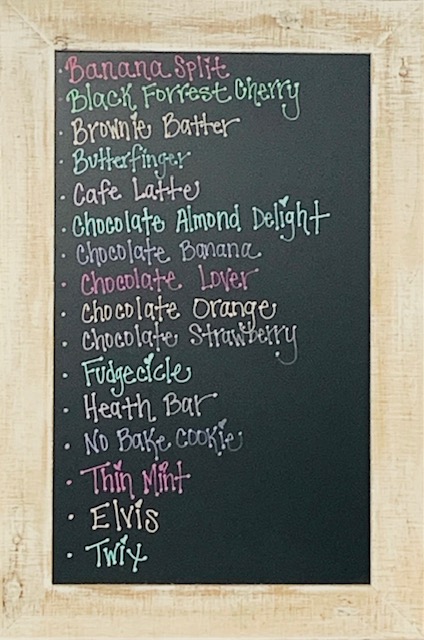 · Banana Split
Black Forrest Cherry
· Brownie Batter
· Butterfinger
· Cafe Latte
· Chocolate Almond Delight
· Chocolate Banana
· Chocolate Lover
· Chocolate Orange
· Chocolate Strawberry
· Fudgecicle
· Heath Bar
· No Bake Cookie
· Thin Mint
· Elvis
· Twix